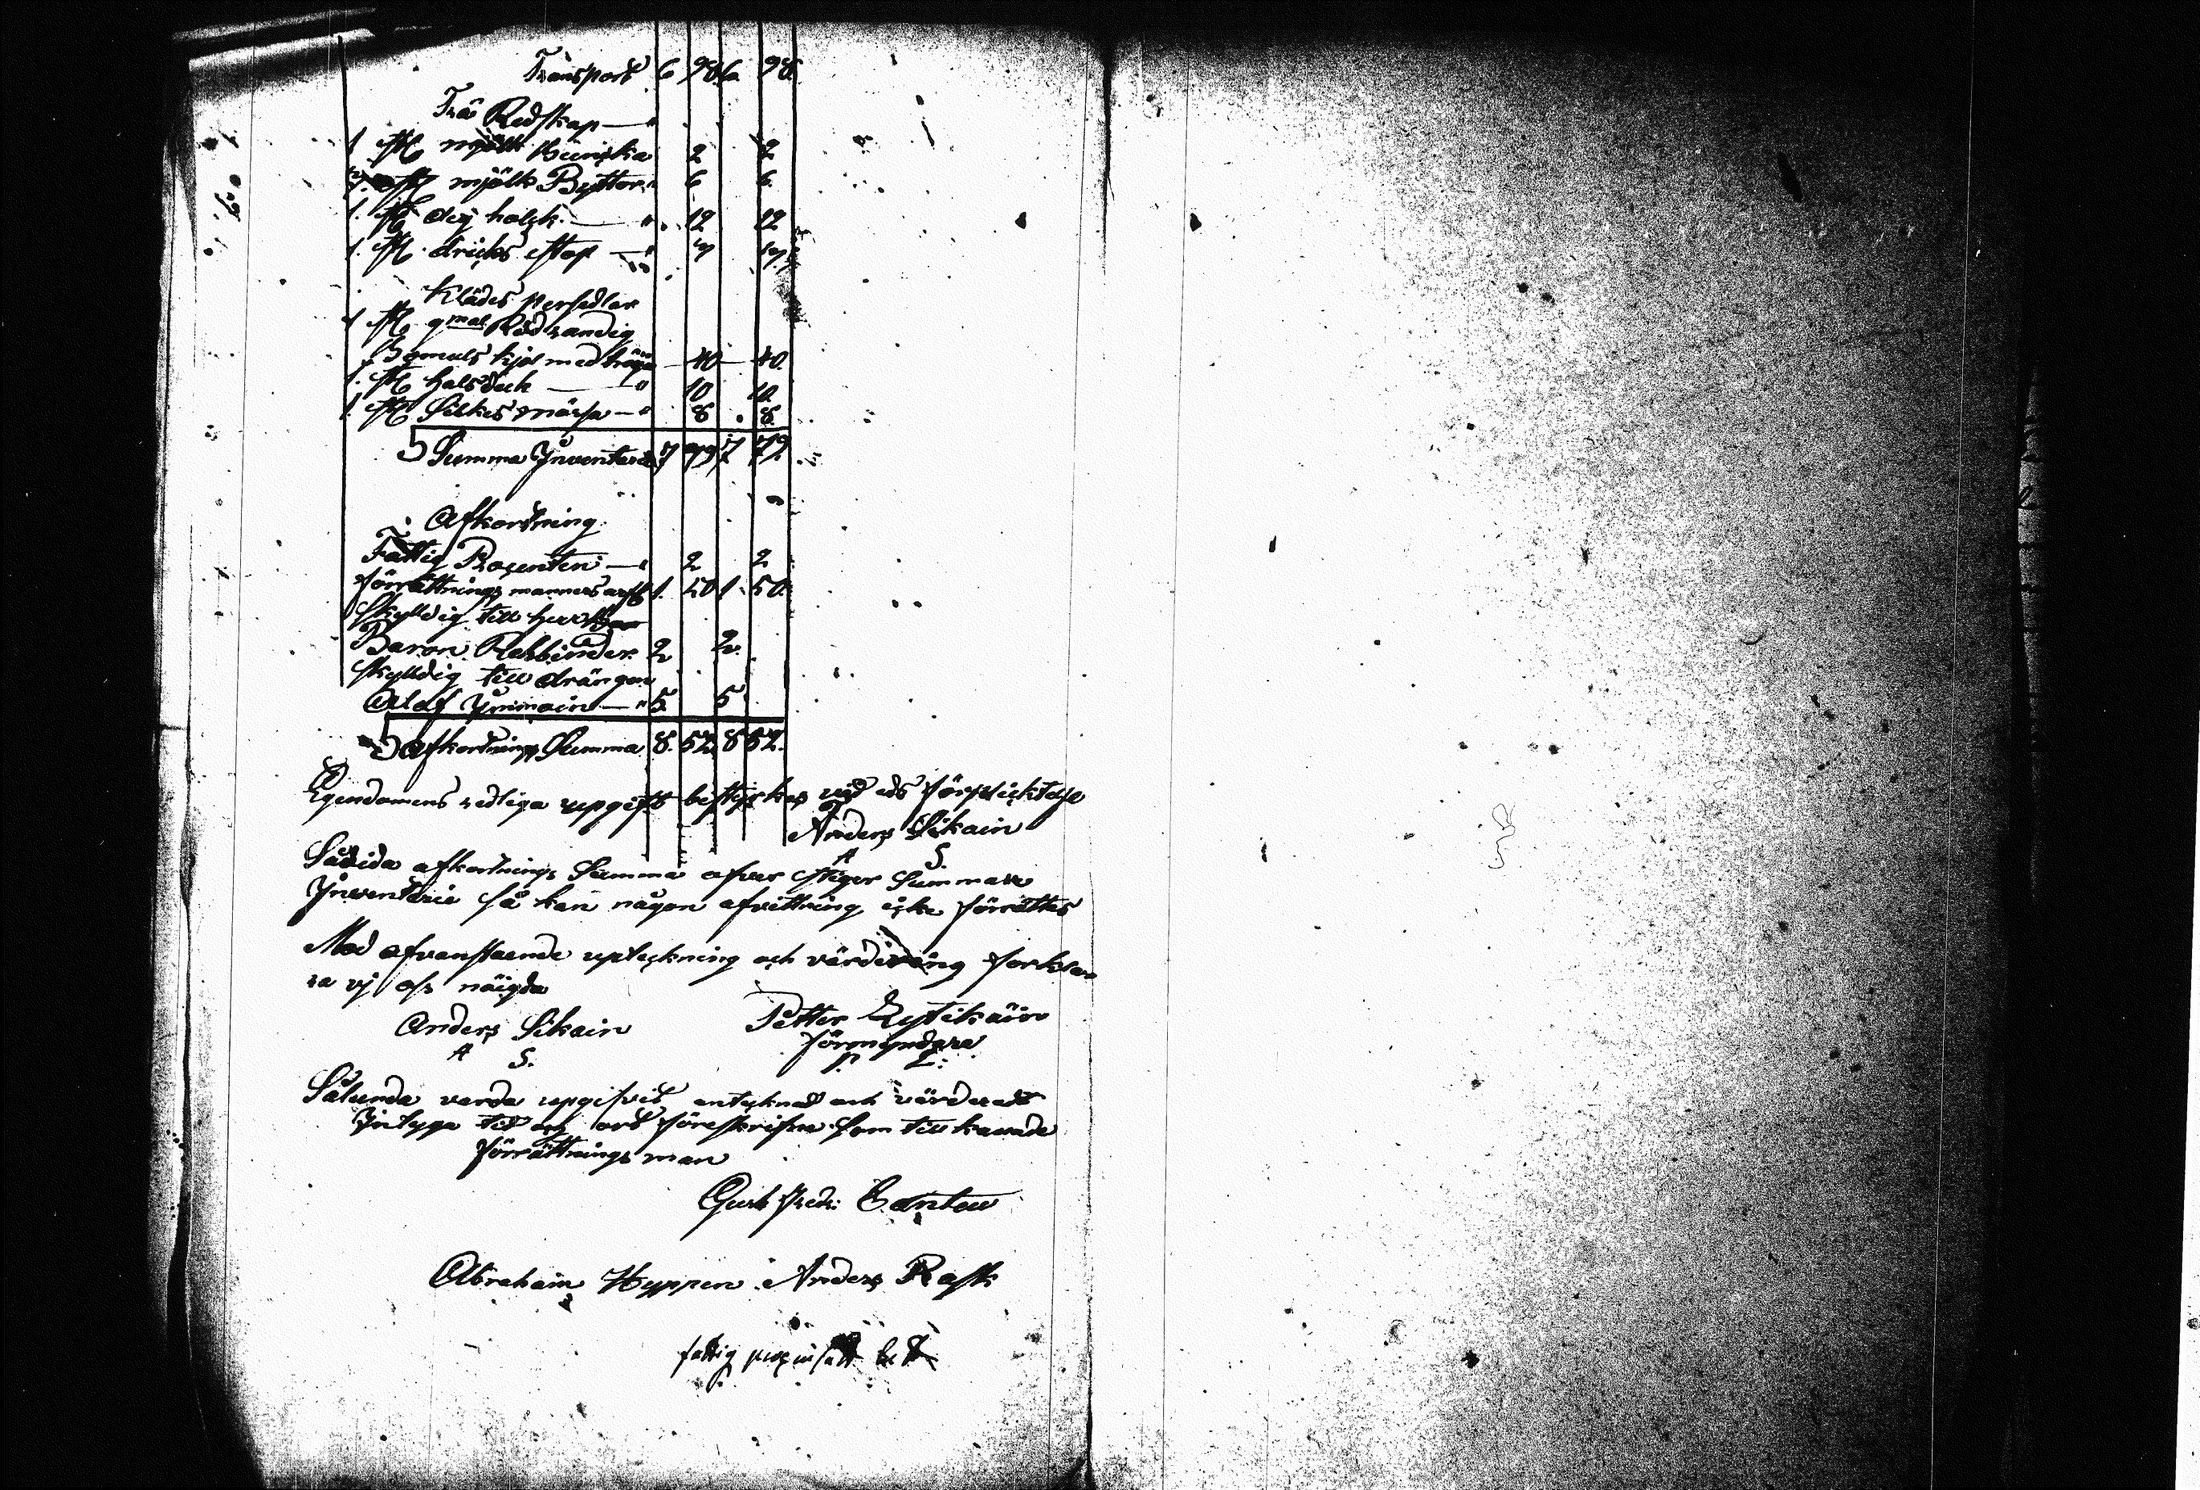 Transport 6 98 6 98
Trä Redskap — "
1 st mjölk Bunka 2 2
2. st mjölk Byttor " 6 6
1. st deg holck — " 12 12
1. st dricks stop — " 4 4
Klädes persedlar
1 st gmal Röd randig
Bomuls kjol med tröja — 40 — 40
1. st halsduk — " 10 10
1. st Silkes mössa — " 8 8
Summa Inventarie 7 7
Afkortning
Fattig Procenten — " 2 2
förrättnings mannens 1. 50 1. 50
Skyldig till herr
Baron Rehbinder 2 2
Skyldig till drängen
Olof Immoin — " 5 5
afkortnings Summa 8. 52 8 52
Egendomens redliga upgift bestyrkes vid eds förpliktelse
Anders Sikain
A S.
Såvida afkortnings Summa öfver stiger Summan
Inventarie så kan någon afvittring icke förrättas
Med ofvanstaende upteckning och värdering forkla
ra vj oss nöigda
Anders Sikain Petter
A S. förmyndare
P. L:
Sålunda varda upgifvit antecknad och värderadt
Intyga tid och ort föreskrifne som till kallade
förrättnings man
Gust Fredr: Cantew
Abraham Hyppen Anders Rask
fattig